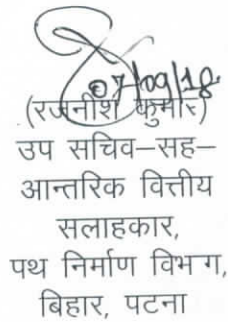 07/09/18
(रजनीश कुमार)
उप सचिव–सह–
आन्तरिक वित्तीय
सलाहकार,
पथ निर्माण विभाग,
बिहार, पटना